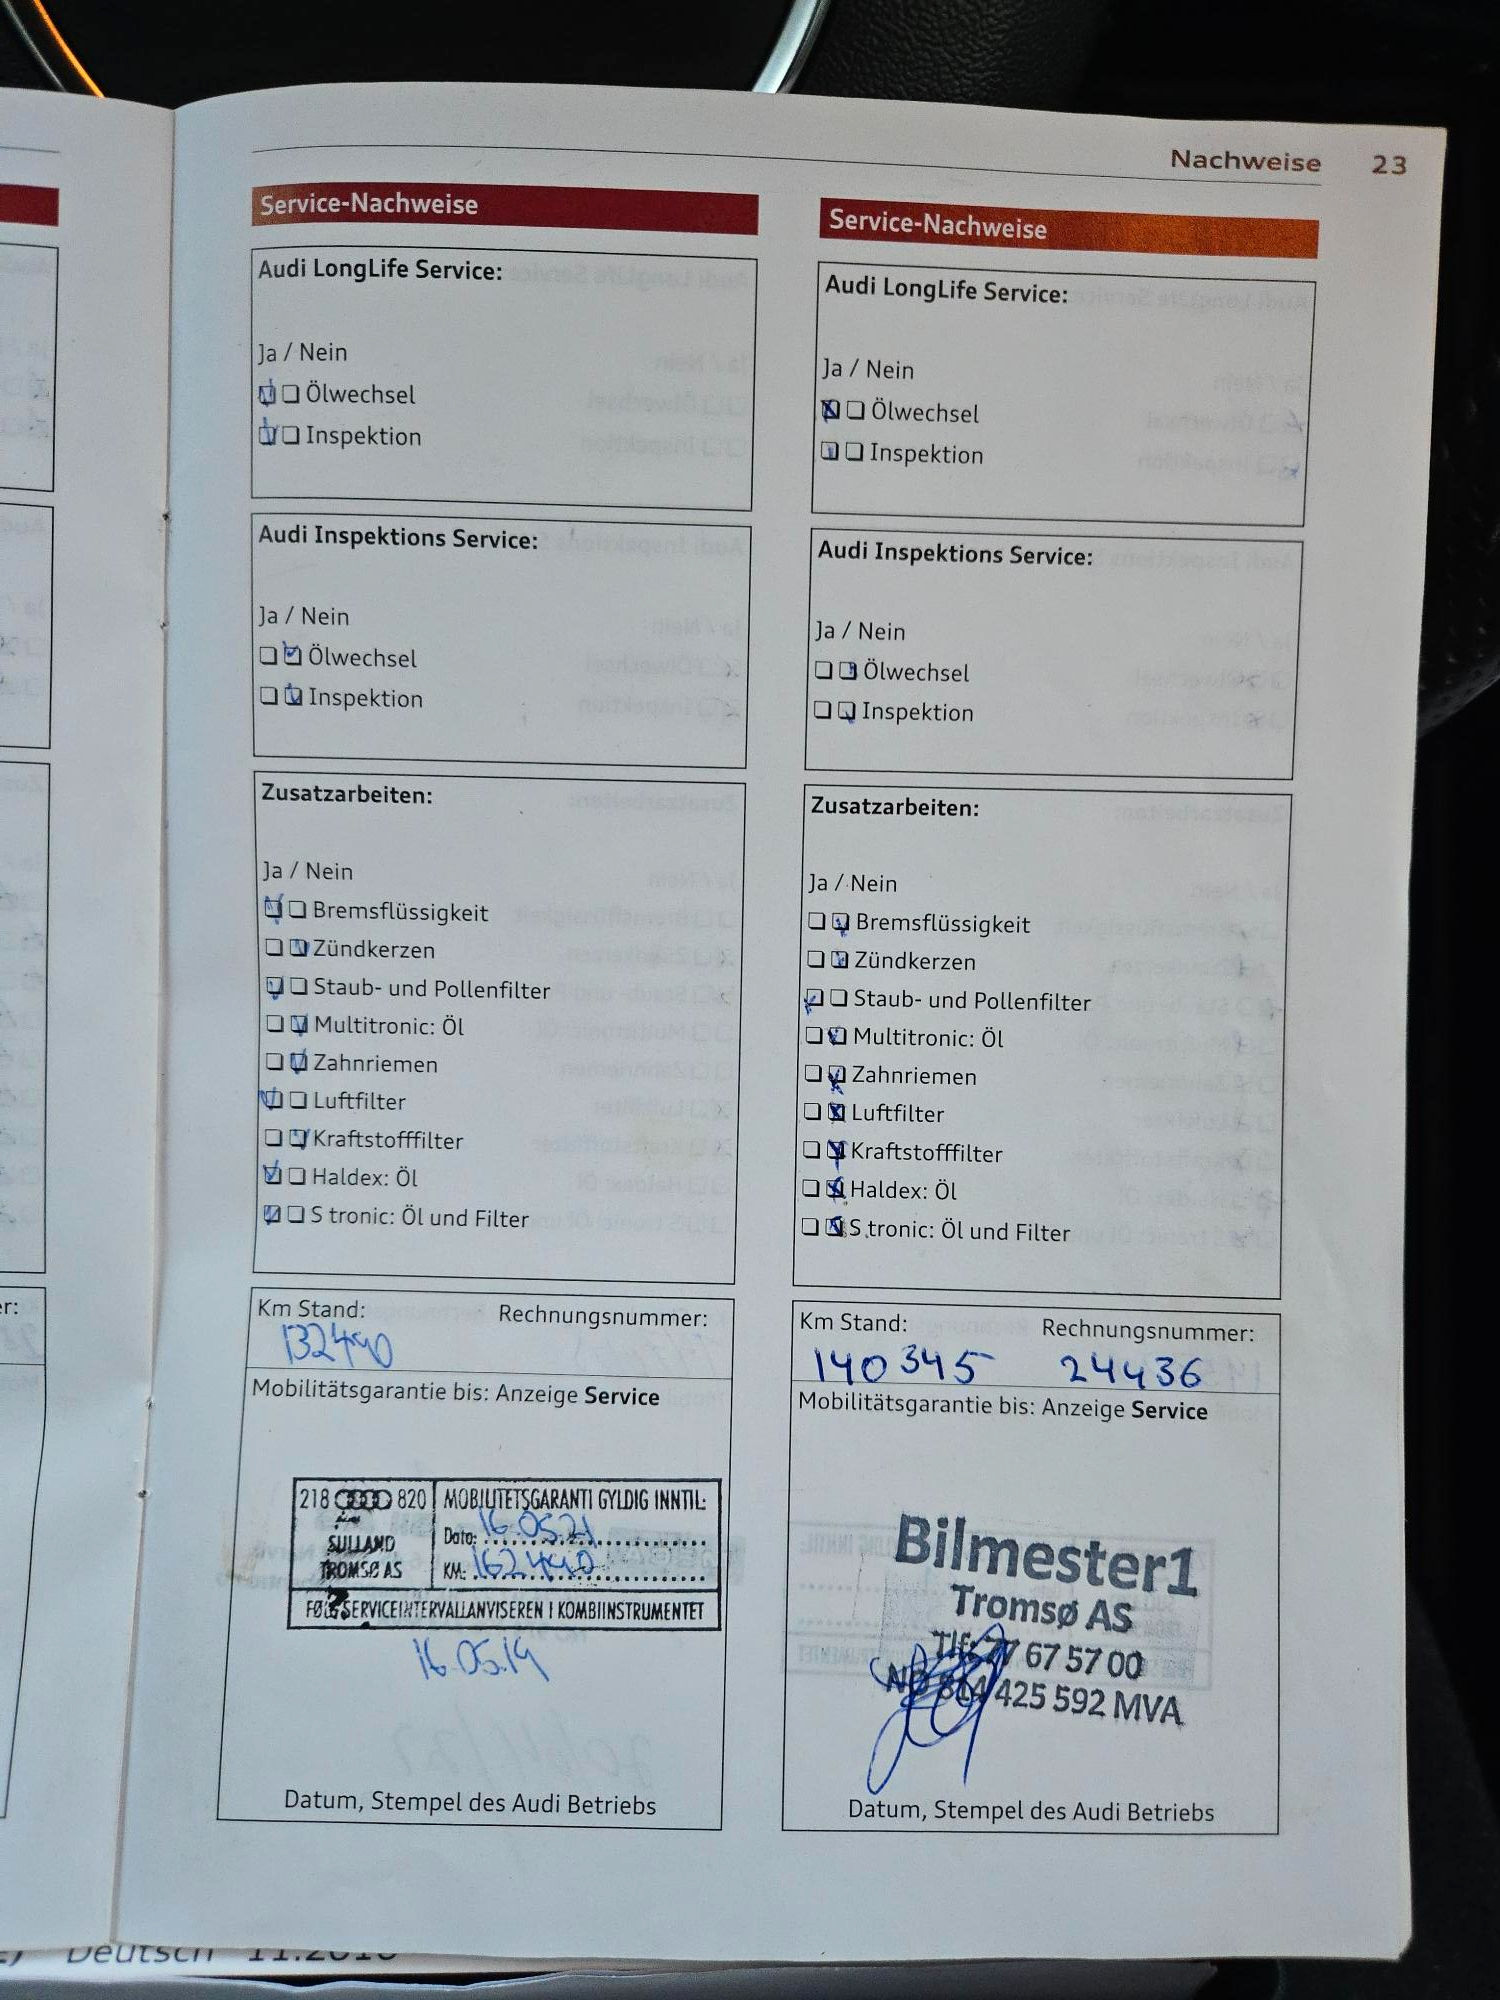 Nachweise 23
Service-Nachweise
Audi LongLife Service:
Ja / Nein
Ölwechsel
Inspektion
Audi Inspektions Service:
Ja / Nein
Ölwechsel
Inspektion
Zusatzarbeiten:
Ja / Nein
Bremsflüssigkeit
Zündkerzen
Staub- und Pollenfilter
Multitronic: Öl
Zahnriemen
Luftfilter
Kraftstofffilter
Haldex: Öl
S tronic: Öl und Filter
Km Stand: Rechnungsnummer:
132490
Mobilitätsgarantie bis: Anzeige Service
218 820 MOBILITETSGARANTI GYLDIG INNTIL:
Dato: 16.05.21
SULLAND
TROMSØ AS KM: 162490
FØLG SERVICEINTERVALLANVISEREN I KOMBIINSTRUMENTET
16.05.19
Datum, Stempel des Audi Betriebs
Service-Nachweise
Audi LongLife Service:
Ja / Nein
Ölwechsel
Inspektion
Audi Inspektions Service:
Ja / Nein
Ölwechsel
Inspektion
Zusatzarbeiten:
Ja / Nein
Bremsflüssigkeit
Zündkerzen
Staub- und Pollenfilter
Multitronic: Öl
Zahnriemen
Luftfilter
Kraftstofffilter
Haldex: Öl
S tronic: Öl und Filter
Km Stand: Rechnungsnummer:
140 345 24436
Mobilitätsgarantie bis: Anzeige Service
Bilmester1
Tromsø AS
Tlf: 77 67 57 00
NO 814 425 592 MVA
Datum, Stempel des Audi Betriebs
Deutsch 11.2010